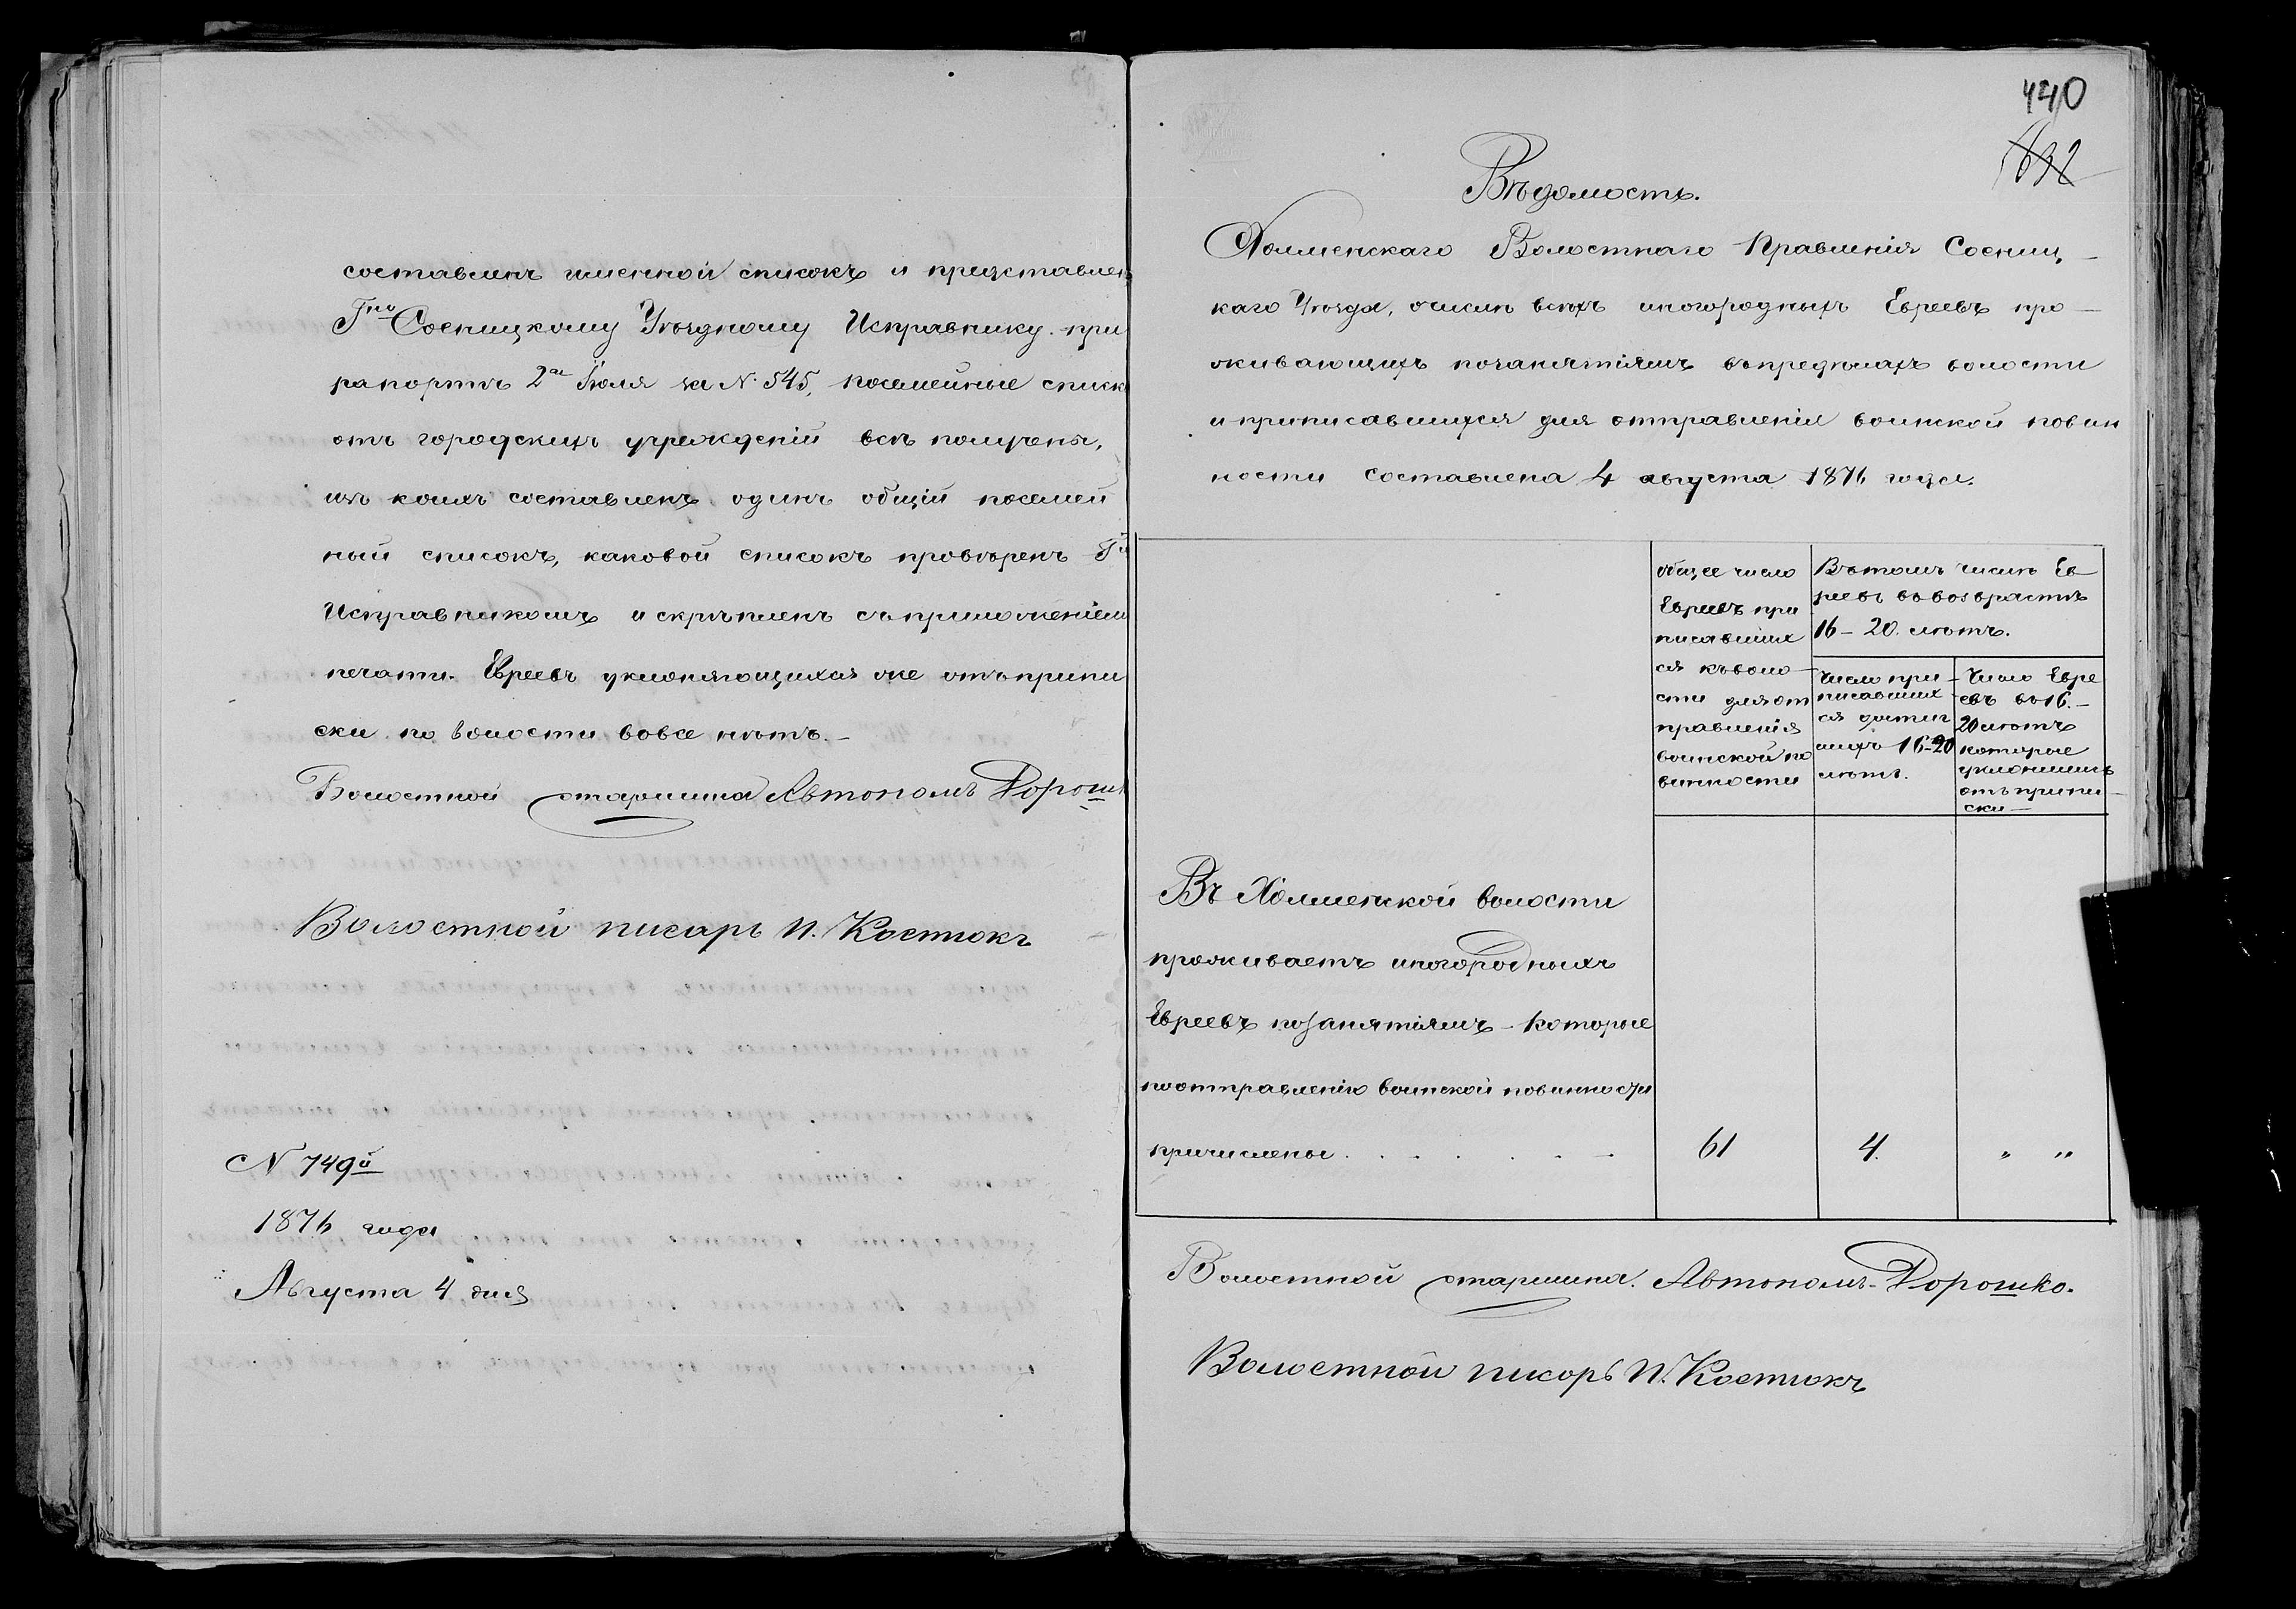 составленъ именной списокъ и представлен
Гно Сосницкому Уѣздному Исправнику при
рапортѣ 2го Іюля за N. 545, посемейные списк
отъ городскихъ учрежденій всѣ получены,
изъ коихъ составленъ одинъ общій посемей
ный списокъ, каковой списокъ провѣренъ Гн
Исправникомъ и скрѣпленъ съприложеніем
печати. Евреевъ уклоняющихся же отъприпи
ски по волости вовсе нѣтъ.—
Волостной старшина Автономъ Дорош
Волостной писарь И. Костюкъ
N 749й
1876 года
Августа 4 дня
440
632
Вѣдомость.
Холменскаго Волостнаго Правленія Сосниц-
каго Уѣзда, очислѣ всѣхъ иногородныхъ Евреевъ про-
живающихъ позанятіямъ впредѣлахъ волости
и приписавшихся для отправленія воинской повин
ности составлена 4 августа 1876 года.
общее число
Евреевъ при
писавших
ся къволо-
сти для от
правленія
воинской по
винности
Вътомъ числѣ Ев
реевъ ввозврастѣ
16-20. лѣтъ.
Число при-
писавших
ся достиг
шихъ 16-20
лѣтъ.
Число Евре
евъ въ16.-
20 лѣтъ
которые
уклонились
отъ припи-
ски—
Въ Холменской волости
проживаетъ иногородныхъ
Евреевъ позанятіямъ - которые
поотправленію воинской повинности
причислены . . . . . . 61 4. " "
Волостной старшина. Автономъ Дорошко.
Волостной писарь И. Костюкъ